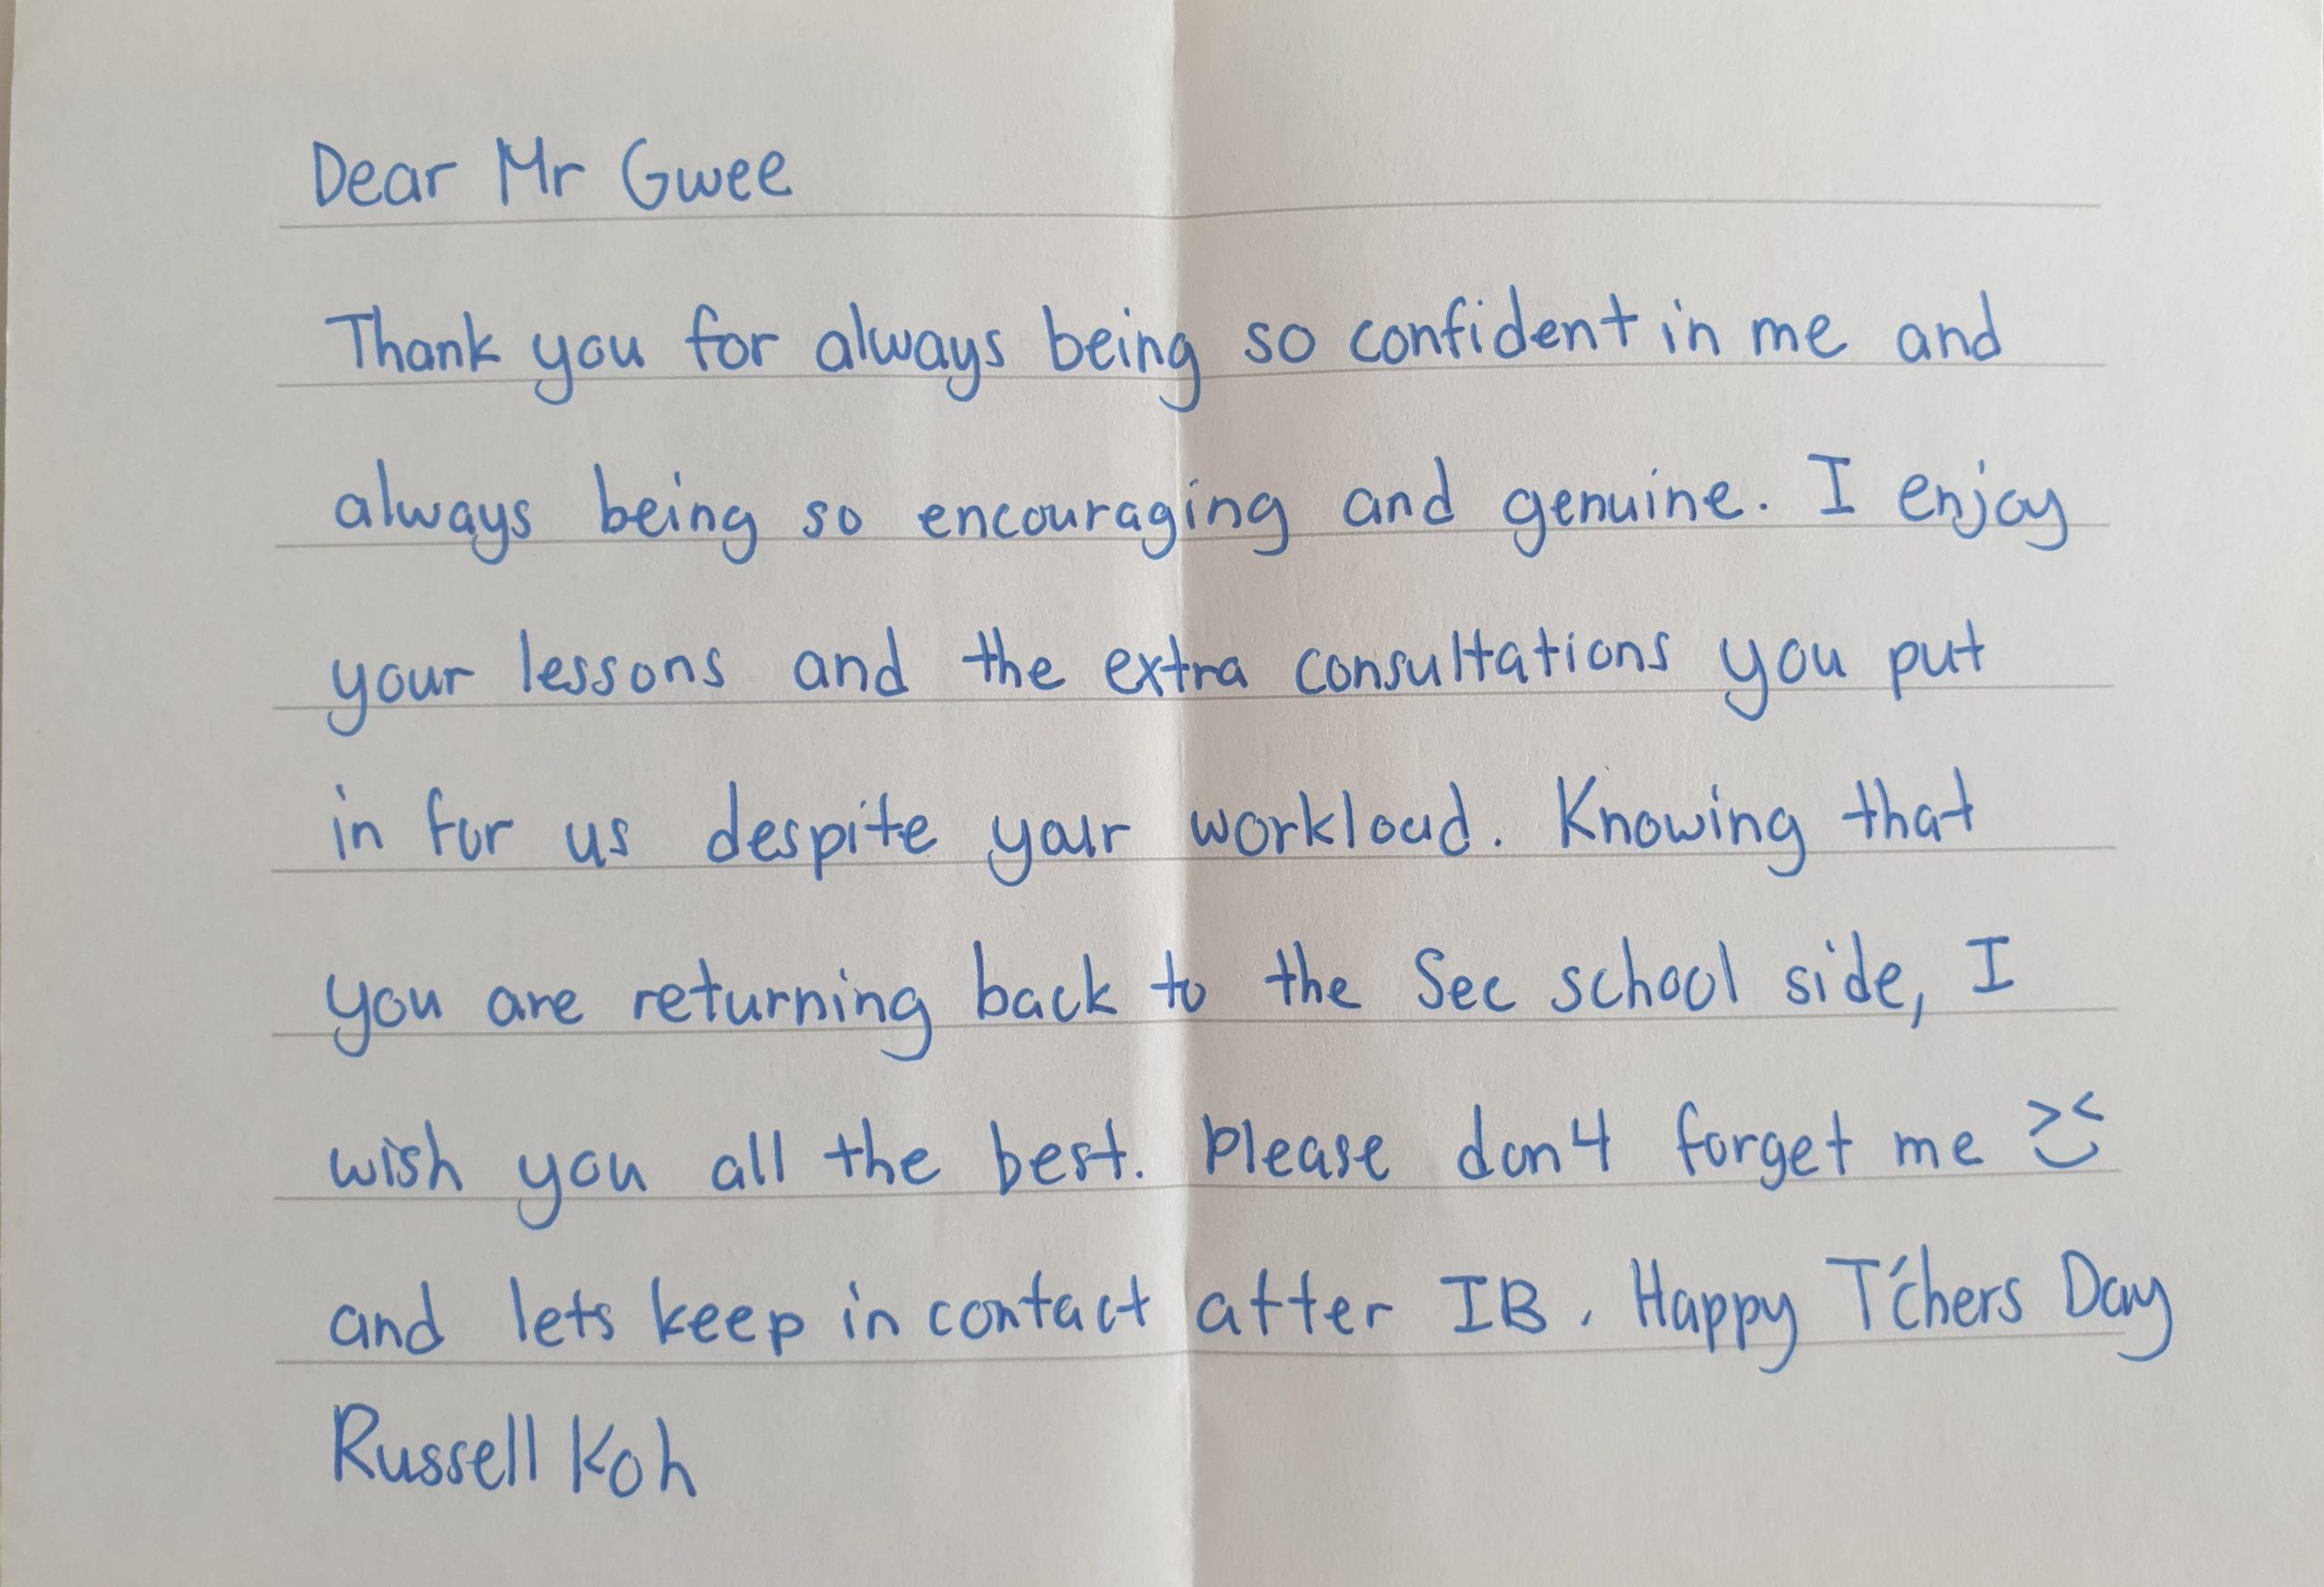 Dear Mr Gwee
Thank you for always being so confident in me and
always being so encouraging and genuine. I enjoy
your lessons and the extra consultations you put
in for us despite your workload. Knowing that
you are returning back to the Sec school side, I
wish you all the best. Please don't forget me ><
and lets keep in contact after IB. Happy T'chers Day
Russell Koh